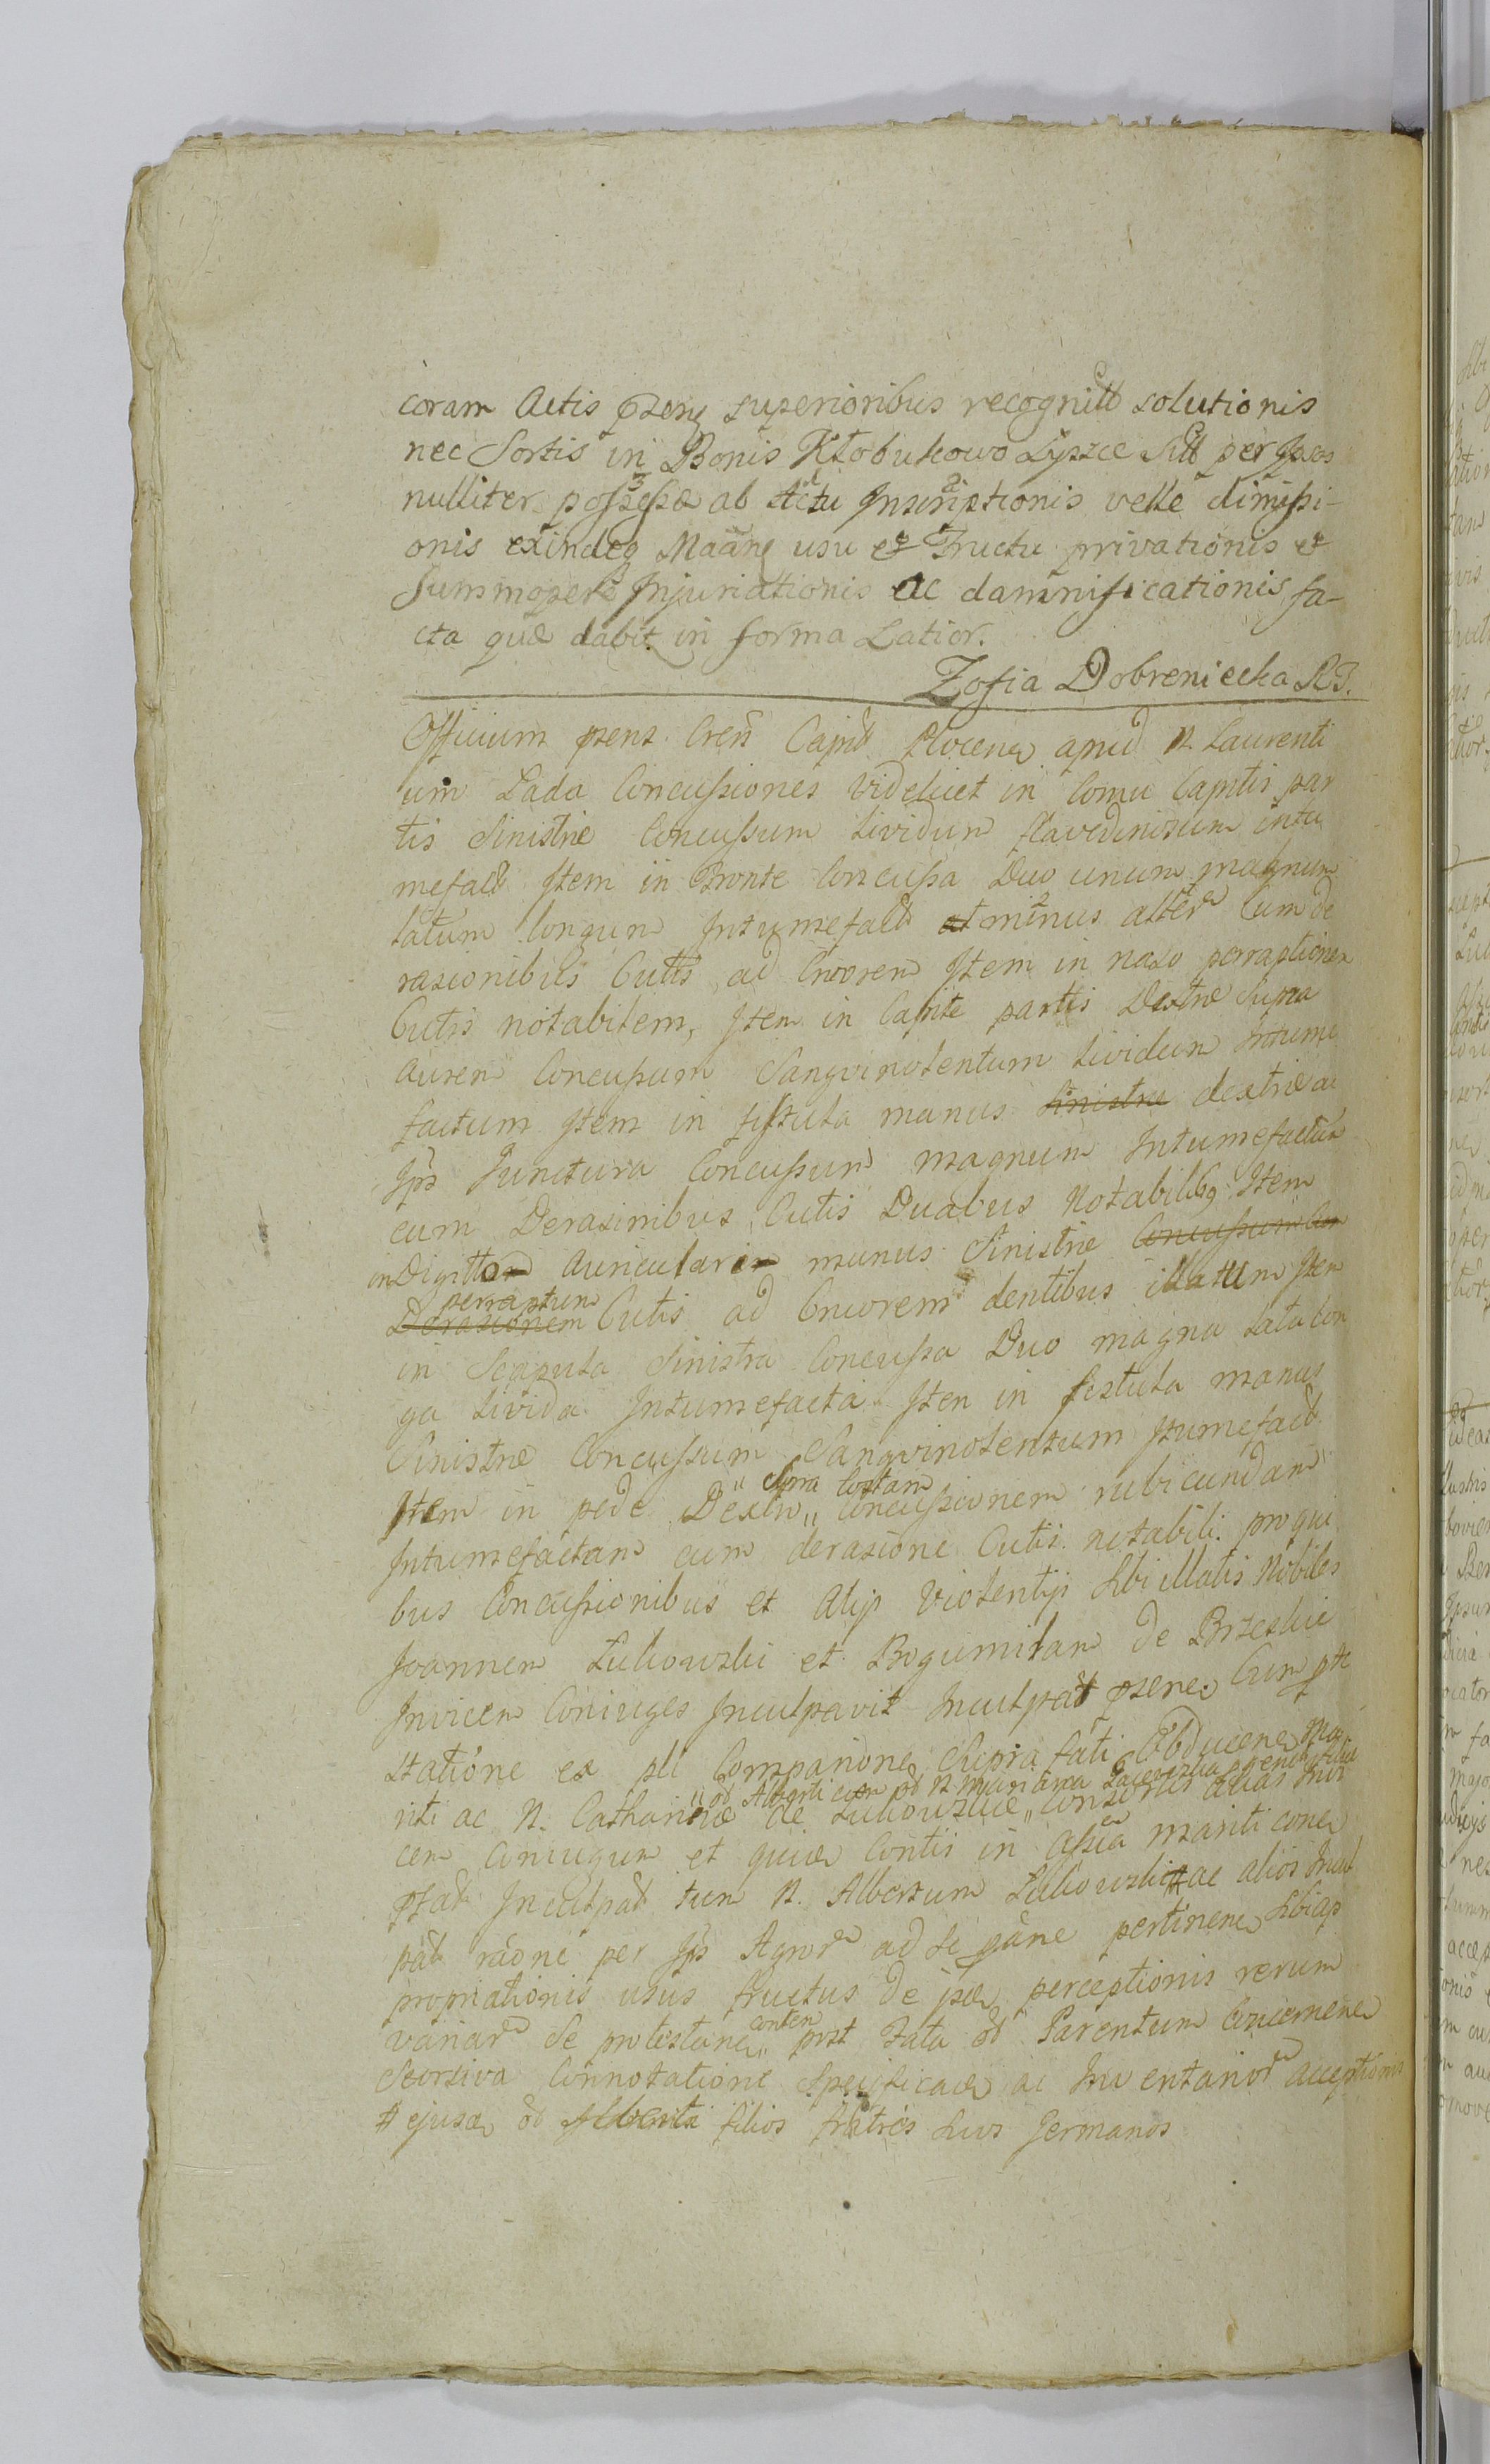 coram Actis psens superioribus recognitt solutionis
nec Sortis in Bonis Kłobukowo Łyszce Sitt per Ipsos
nulliter possessæ ab Actu Inscriptionis velle dimissi-
onis exindeq Maane usu et Fructu privationis et
summopere Injuriationis ac damnificationis fa-
cta quæ dabit in forma Latior.
Zofia Dobreniecka
Officium psens Cren Capitt Plocens apud N. Laurenti
um Lada Concussiones Videlicet in Cornu Capitis par
tis Sinistræ Concussum Lividum flavedinosum intu
mefact Item in Fronte Concussa Duo unum magnum
latum longum Intumefact at minus alter cum de
rasionibus Cutis ad Cruorem Item in naso perraptionem
Cutis notabilem, Item in Capite partis Dextræ Supra
aurem Concussum Sangvinolentum Lividum Intume
factum Item in fistula manus sinistræ dextræ ac
Ips Junctura Concussum magnum Intumefactum
cum Derasinibus Cutis Duabus Notabilibq Item
in Digitto auriculari manus Sinistræ Concussum
perraptum
Derasionem Cutis ad Cruorem dentibus illatum Item
in Scapula Sinistra Concussa Duo magna Lata lon
ga Livida Intumefacta Item in fistula manus
Sinistræ Concussum Sangvinolentum Itumefact
supra Costam
Item in pede Dextro Concussionem rubicundam
Intumefactam cum derasione Cutis notabili pro qui
bus Concussionibus et Alijs Violentijs Sibi illatis Nobiles
Joannem Lukowski et Bogumilam de Brzeskie
Invicem Coniuges Inculpavit Inculpatt psens Cum
statione ex Comparione Supra fati Obducens Ma
riti ac N. Catharinæ de Lukowskie consortis alias Invi
cem Coniugum et quivis Contis in Assia mariti
Inculpat tum N. Albertum Lukowski # ac alios Incul
pat raone per Ips Agror ad se pertinens Sibi ap
propriationis usus fructus de perceptionis rerum
conten
variar de protestans post Fata Parentum
Seorsiva Connotatione Specificaa ac Inventarior acceptionis
# ejusd Alberti filios fratres suos Germanos